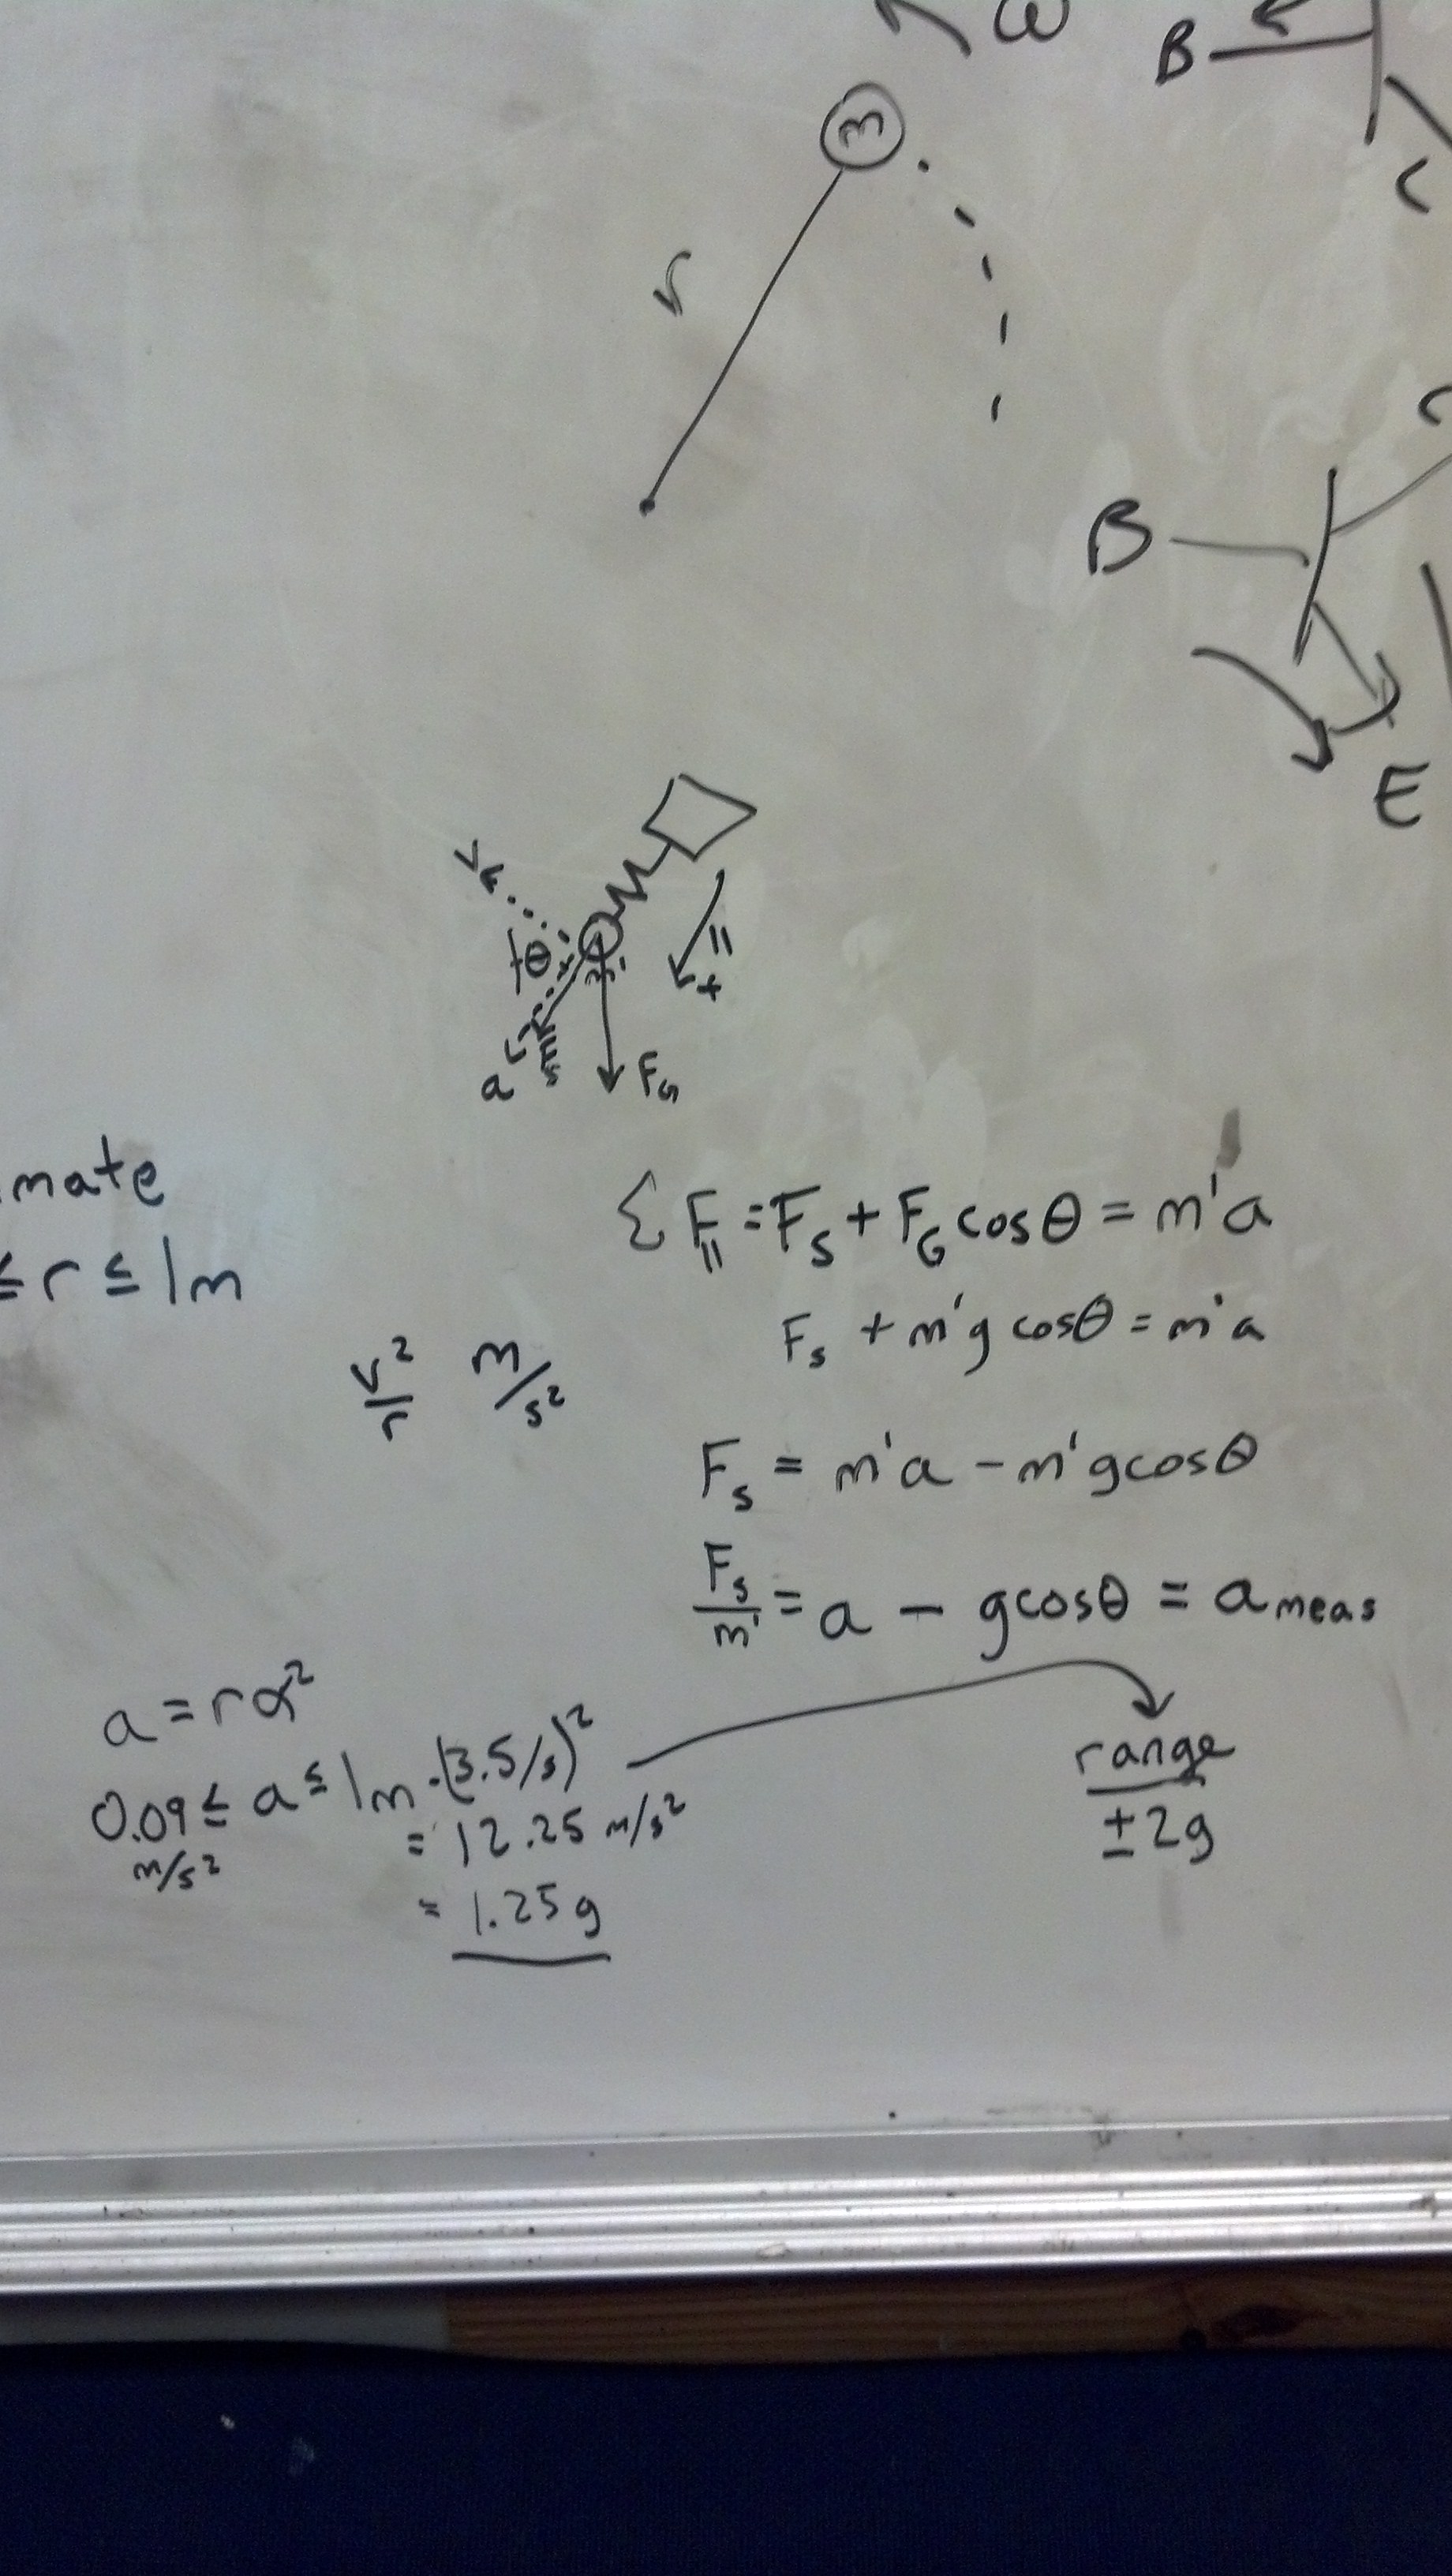 ω
B
m
C
r
B
E
v
θ
m'
+ ||
a
F_s
F_G
mate
≤ r ≤ 1m
Σ F_|| = F_s + F_G cosθ = m'a
F_s + m'g cosθ = m'a
v²/r m/s²
F_s = m'a - m'gcosθ
F_s/m' = a - gcosθ = a_meas
a = rα²
0.09 ≤ a ≤ 1m · (3.5/s)²
m/s²
= 12.25 m/s²
= 1.25g
range
±2g